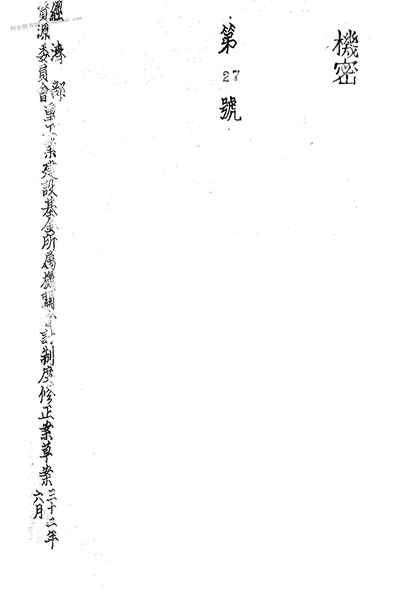 機密
第27號
經濟部
資源委員會重工業建設基金所屬機關會計制度修正案草案
三十二年
六月